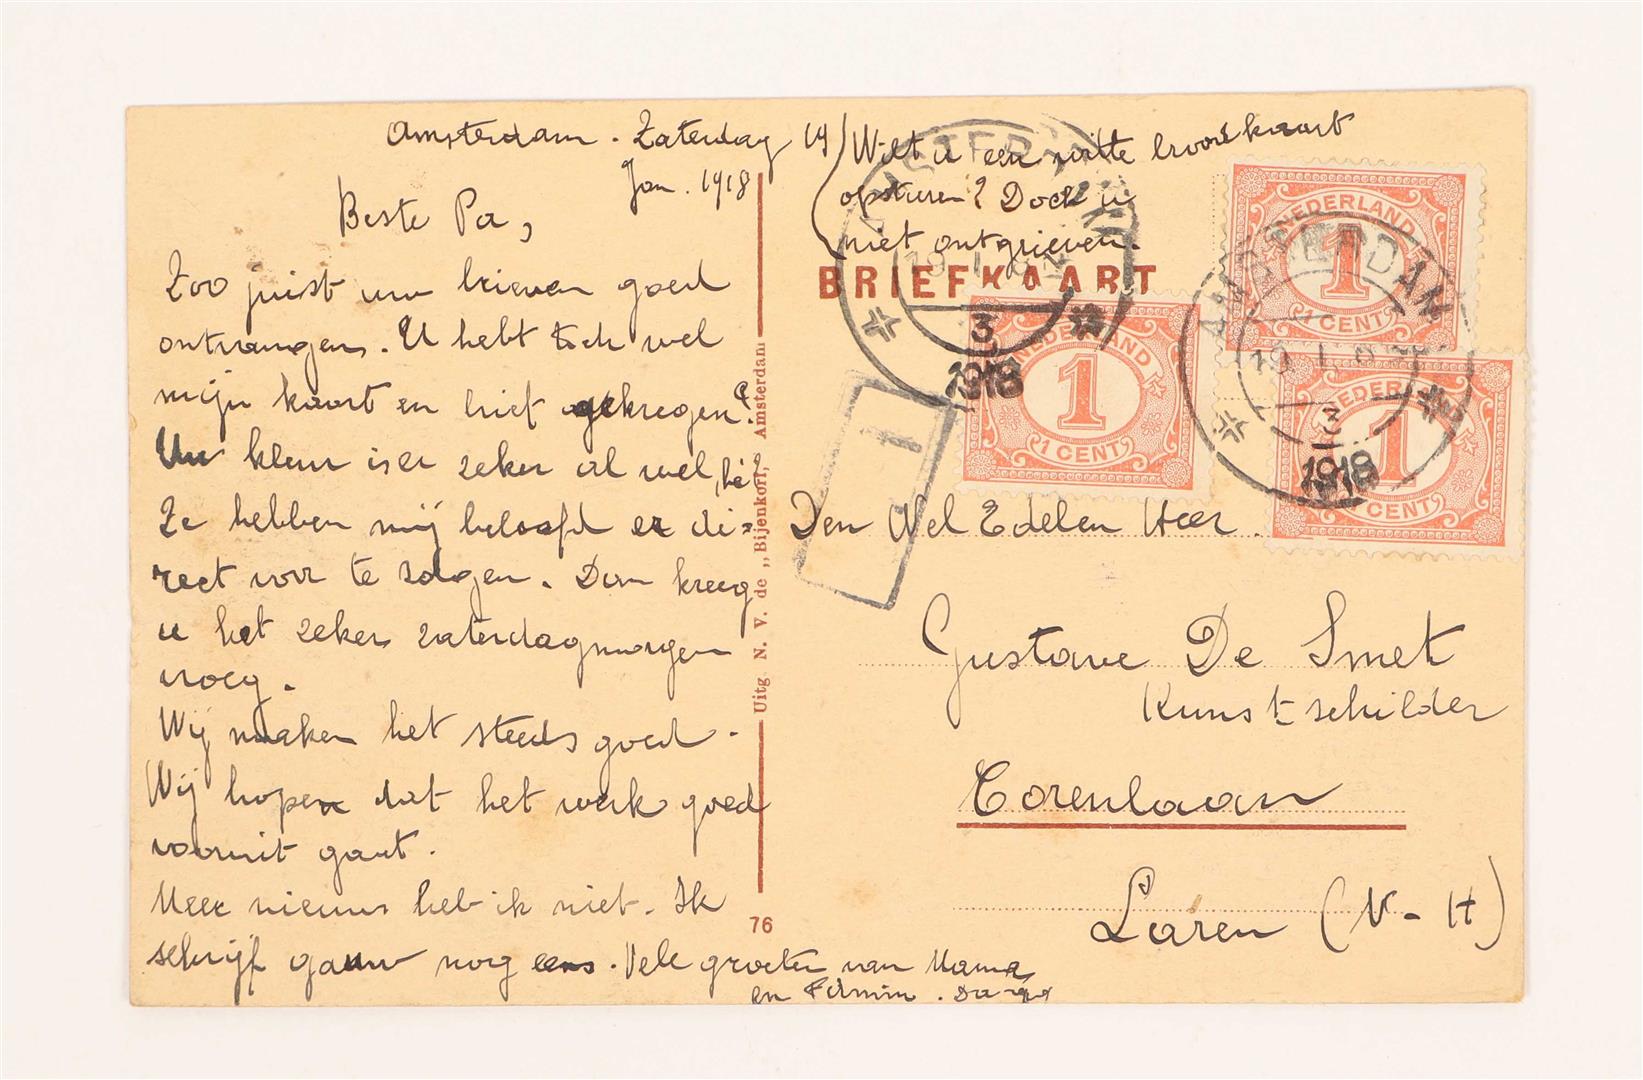 Amsterdam. Zaterdag 19
Jan. 1918
Beste Pa,
Zoo juist uw brieven goed
ontvangen. U hebt toch wel
mijn kaart en brief gekregen?
Uw kleur is er zeker al wel, hé
Ze hebben mij beloofd er di=
rect voor te zorgen. Dan kreeg
u het zeker zaterdagmorgen
vroeg.
Wij maken het steeds goed.
Wij hopen dat het werk goed
vooruit gaat.
Meer nieuws heb ik niet. Ik
schrijf gauw nog eens. Vele groeten van Mama
en Firmin.
Wilt u een witte broodkaart
opsturen? Doch u
niet ontgrieven.
BRIEFKAART
AMSTERDAM
19 1
3
1918
NEDERLAND
1
1 CENT
AMSTERDAM
19 1
3
1918
NEDERLAND
1
1 CENT
NEDERLAND
1
CENT
1
Den Wel Edelen Heer
Gustave De Smet
Kunstschilder
Torenlaan
Laren (N-H)
Uitg. N. V. de „Bijenkorf," Amsterdam
76